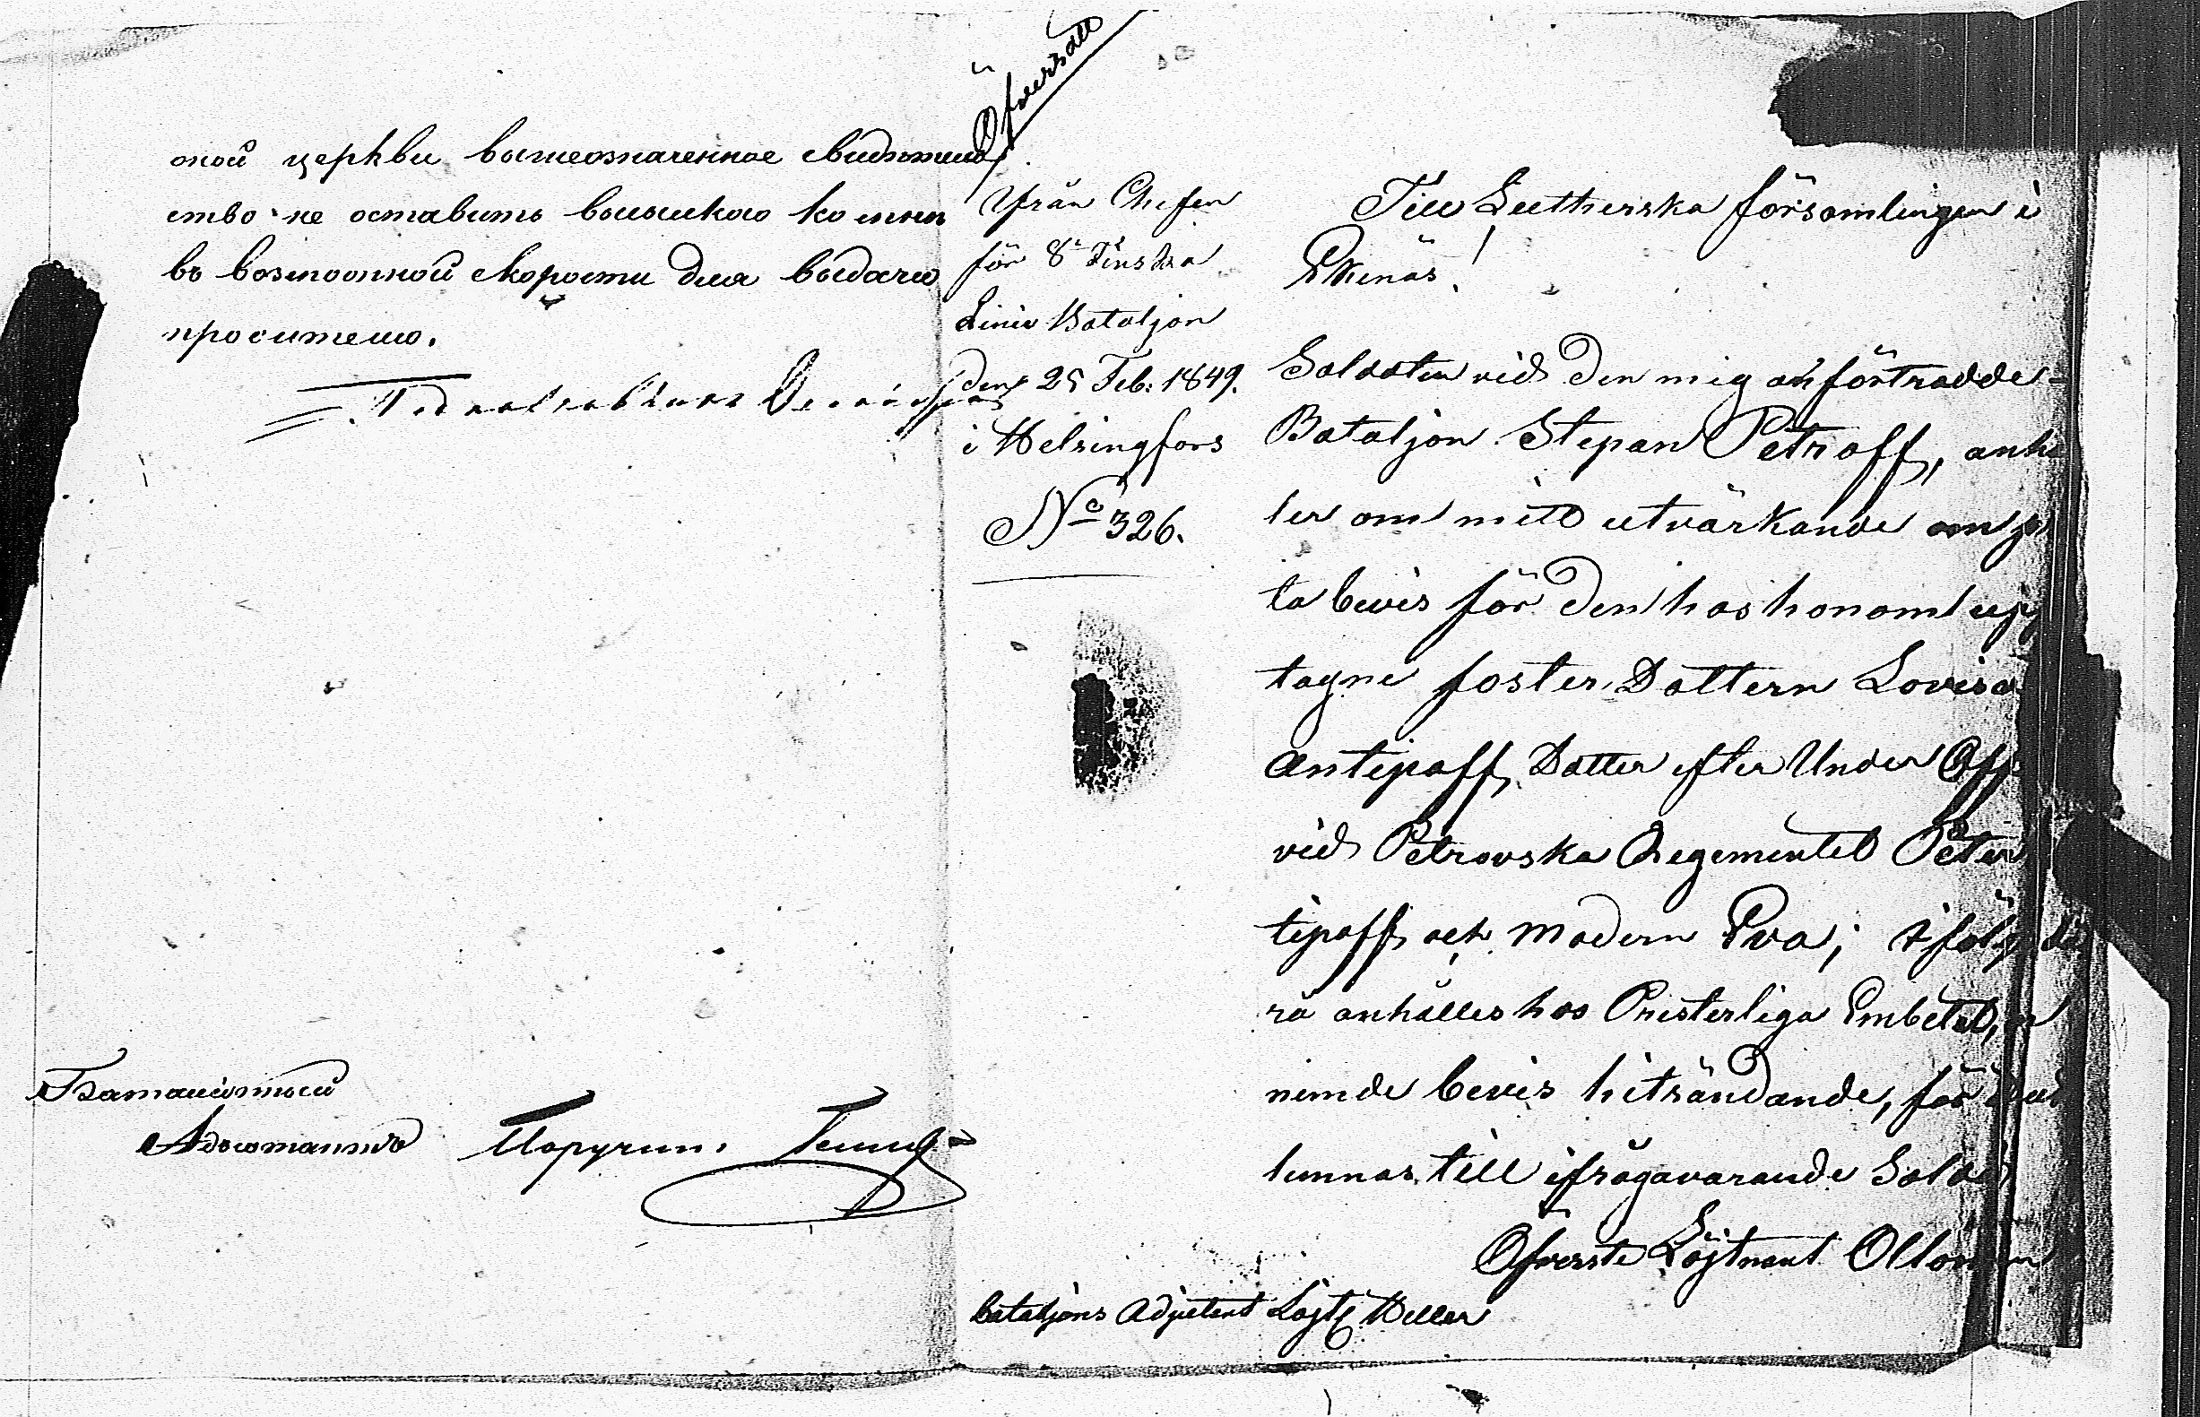 ской церкви вышеозначенное свидетель
ство не оставить высылкою ко мне
въ возможной скорости для выдачи
просителю.
Подполковникъ
Баталіонный
Адъютантъ Поручикъ
Öfversatt
Ifrån Chefen
för 8de Finska
Linie Bataljon
den 25 Feb: 1849.
i Helsingfors
No 326.
Till Lutherska församlingen i
Ekenäs!
Soldaten vid den mig anförtrodde
Bataljon Stepan Petroff, anhå
ler om mitt utvärkande om
ta bevis för den hos honom upp
tagne foster Dottern Lovisa
Antipoff, Dotter efter Under Off
vid Petrovska Regementet Peter
tipoff och modern Eva; ifölg de
rå anhålles hos Presterliga Embetet,
nimde bevis hitsändande, för
lemnas till ifrågavarande Solda
Öfverste Löjtnant
bataljons Adjutent Löjt Heller